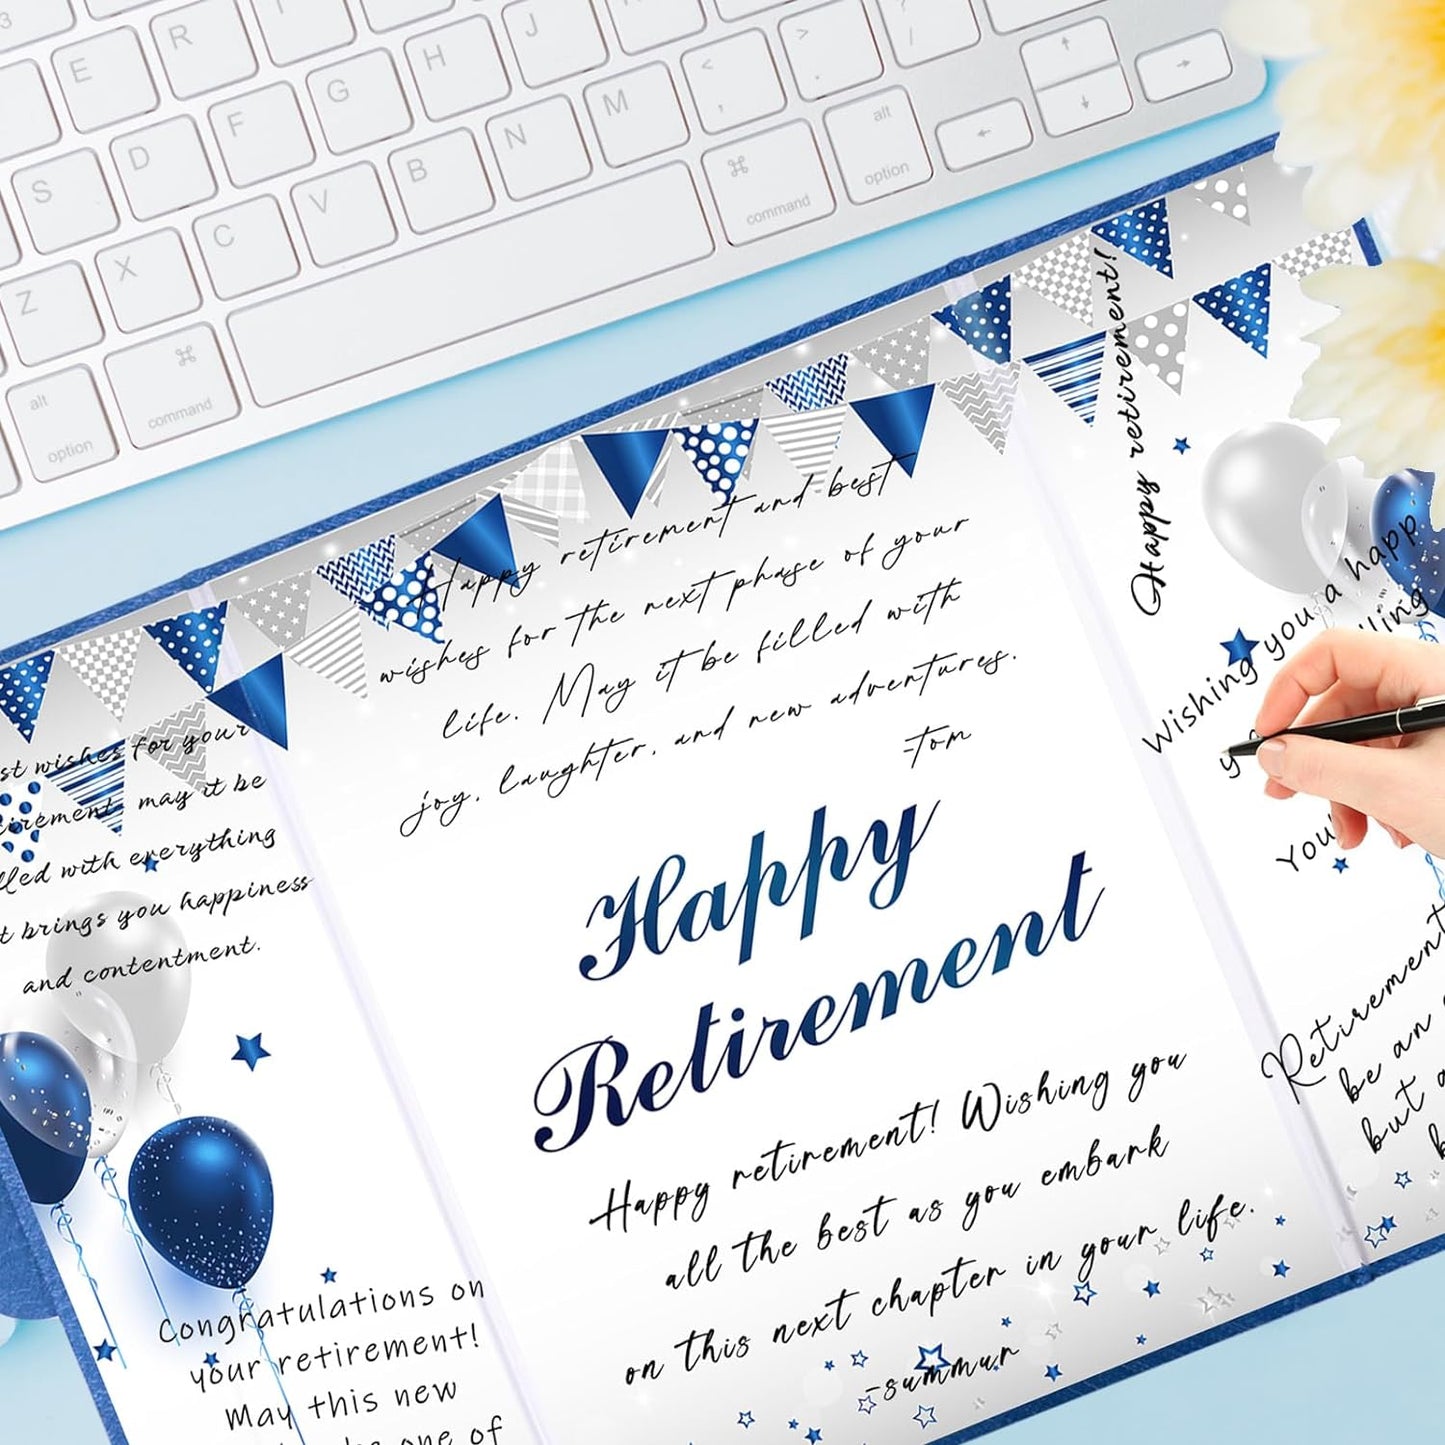 3
E
R
T
Y
S
D
F
G
H
J
Z
X
C
V
B
N
M
<
,
>
.
?
/
alt
option
⌘
command
⌘
command
alt
option
Happy retirement and best
wishes for the next phase of your
life. May it be filled with
joy, laughter, and new adventures.
-Tom
Happy
Retirement
Happy retirement! Wishing you
all the best as you embark
on this next chapter in your life.
-summur
wishes for your
may it be
with everything
brings you happiness
and contentment.
Congratulations on
your retirement!
May this new
one of
Happy retirement!
Wishing you a happ
Retirement
be an
but